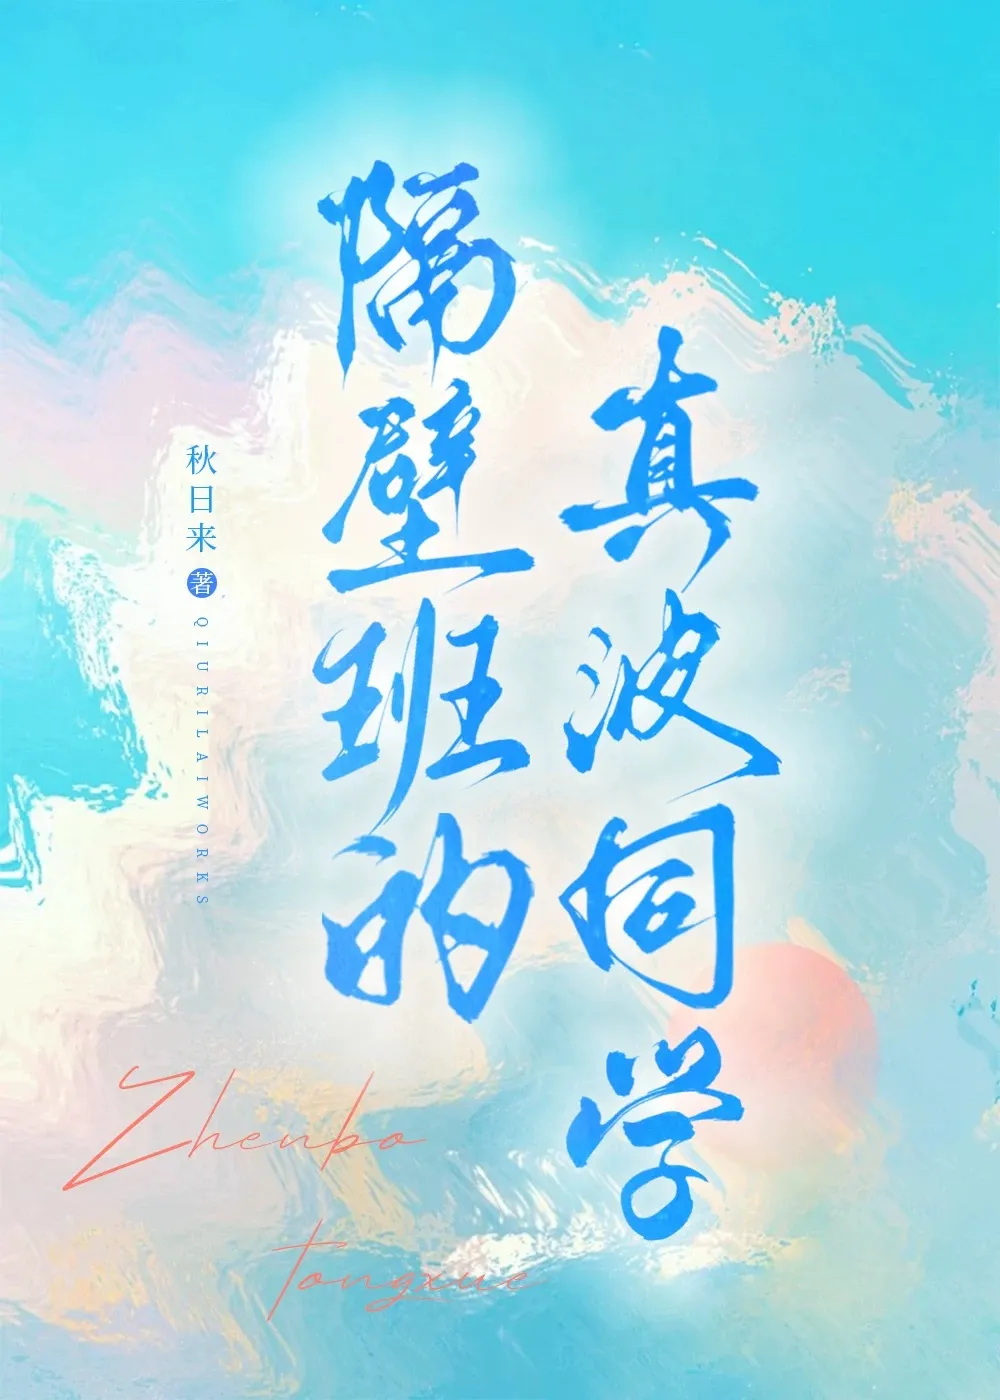 隔壁班的
真波同学
秋日来 著
QIURILAIWORKS
Zhenbo
tongxue